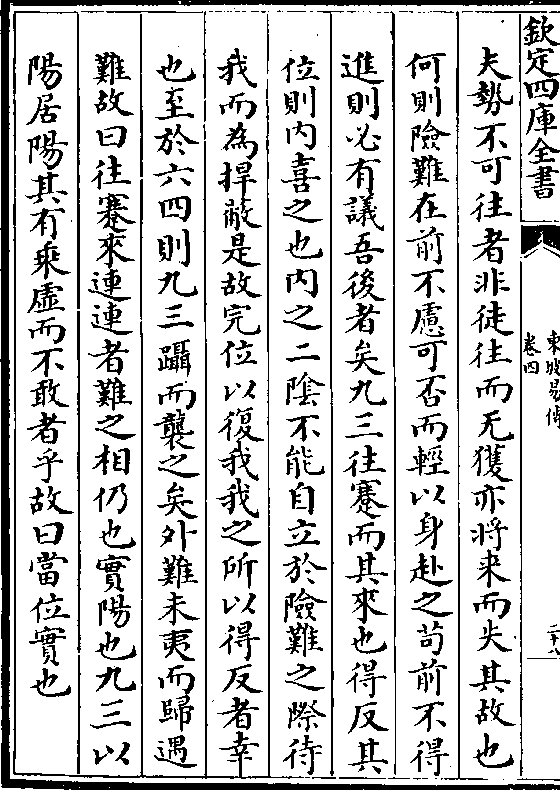 欽定四庫全書
東坡易傳
卷四
夫勢不可往者非徒往而无獲亦將来而失其故也
何則險難在前不慮可否而輕以身赴之苟前不得
進則必有議吾後者矣九三往蹇而其來也得反其
位則内喜之也内之二隂不能自立於險難之際待
我而為捍蔽是故完位以復我我之所以得反者幸
也至於六四則九三躡而襲之矣外難未夷而歸遇
難故曰往蹇來連連者難之相仍也實陽也九三以
陽居陽其有乘虛而不敢者乎故曰當位實也